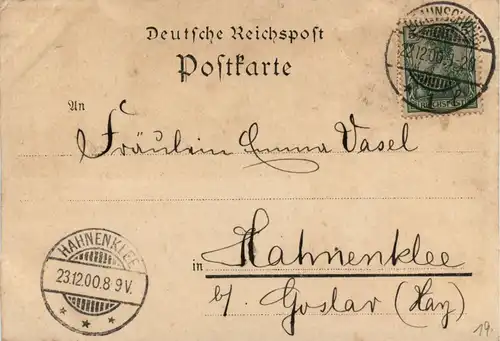 Deutsche Reichspost
Postkarte
BRAUNSCHWEIG
23.12.00.
An
Fräulein Emma Vasel
HAHNENKLEE
23.12.00.8-9V.
in Hahnenklee
b/. Goslar (Harz)
19.